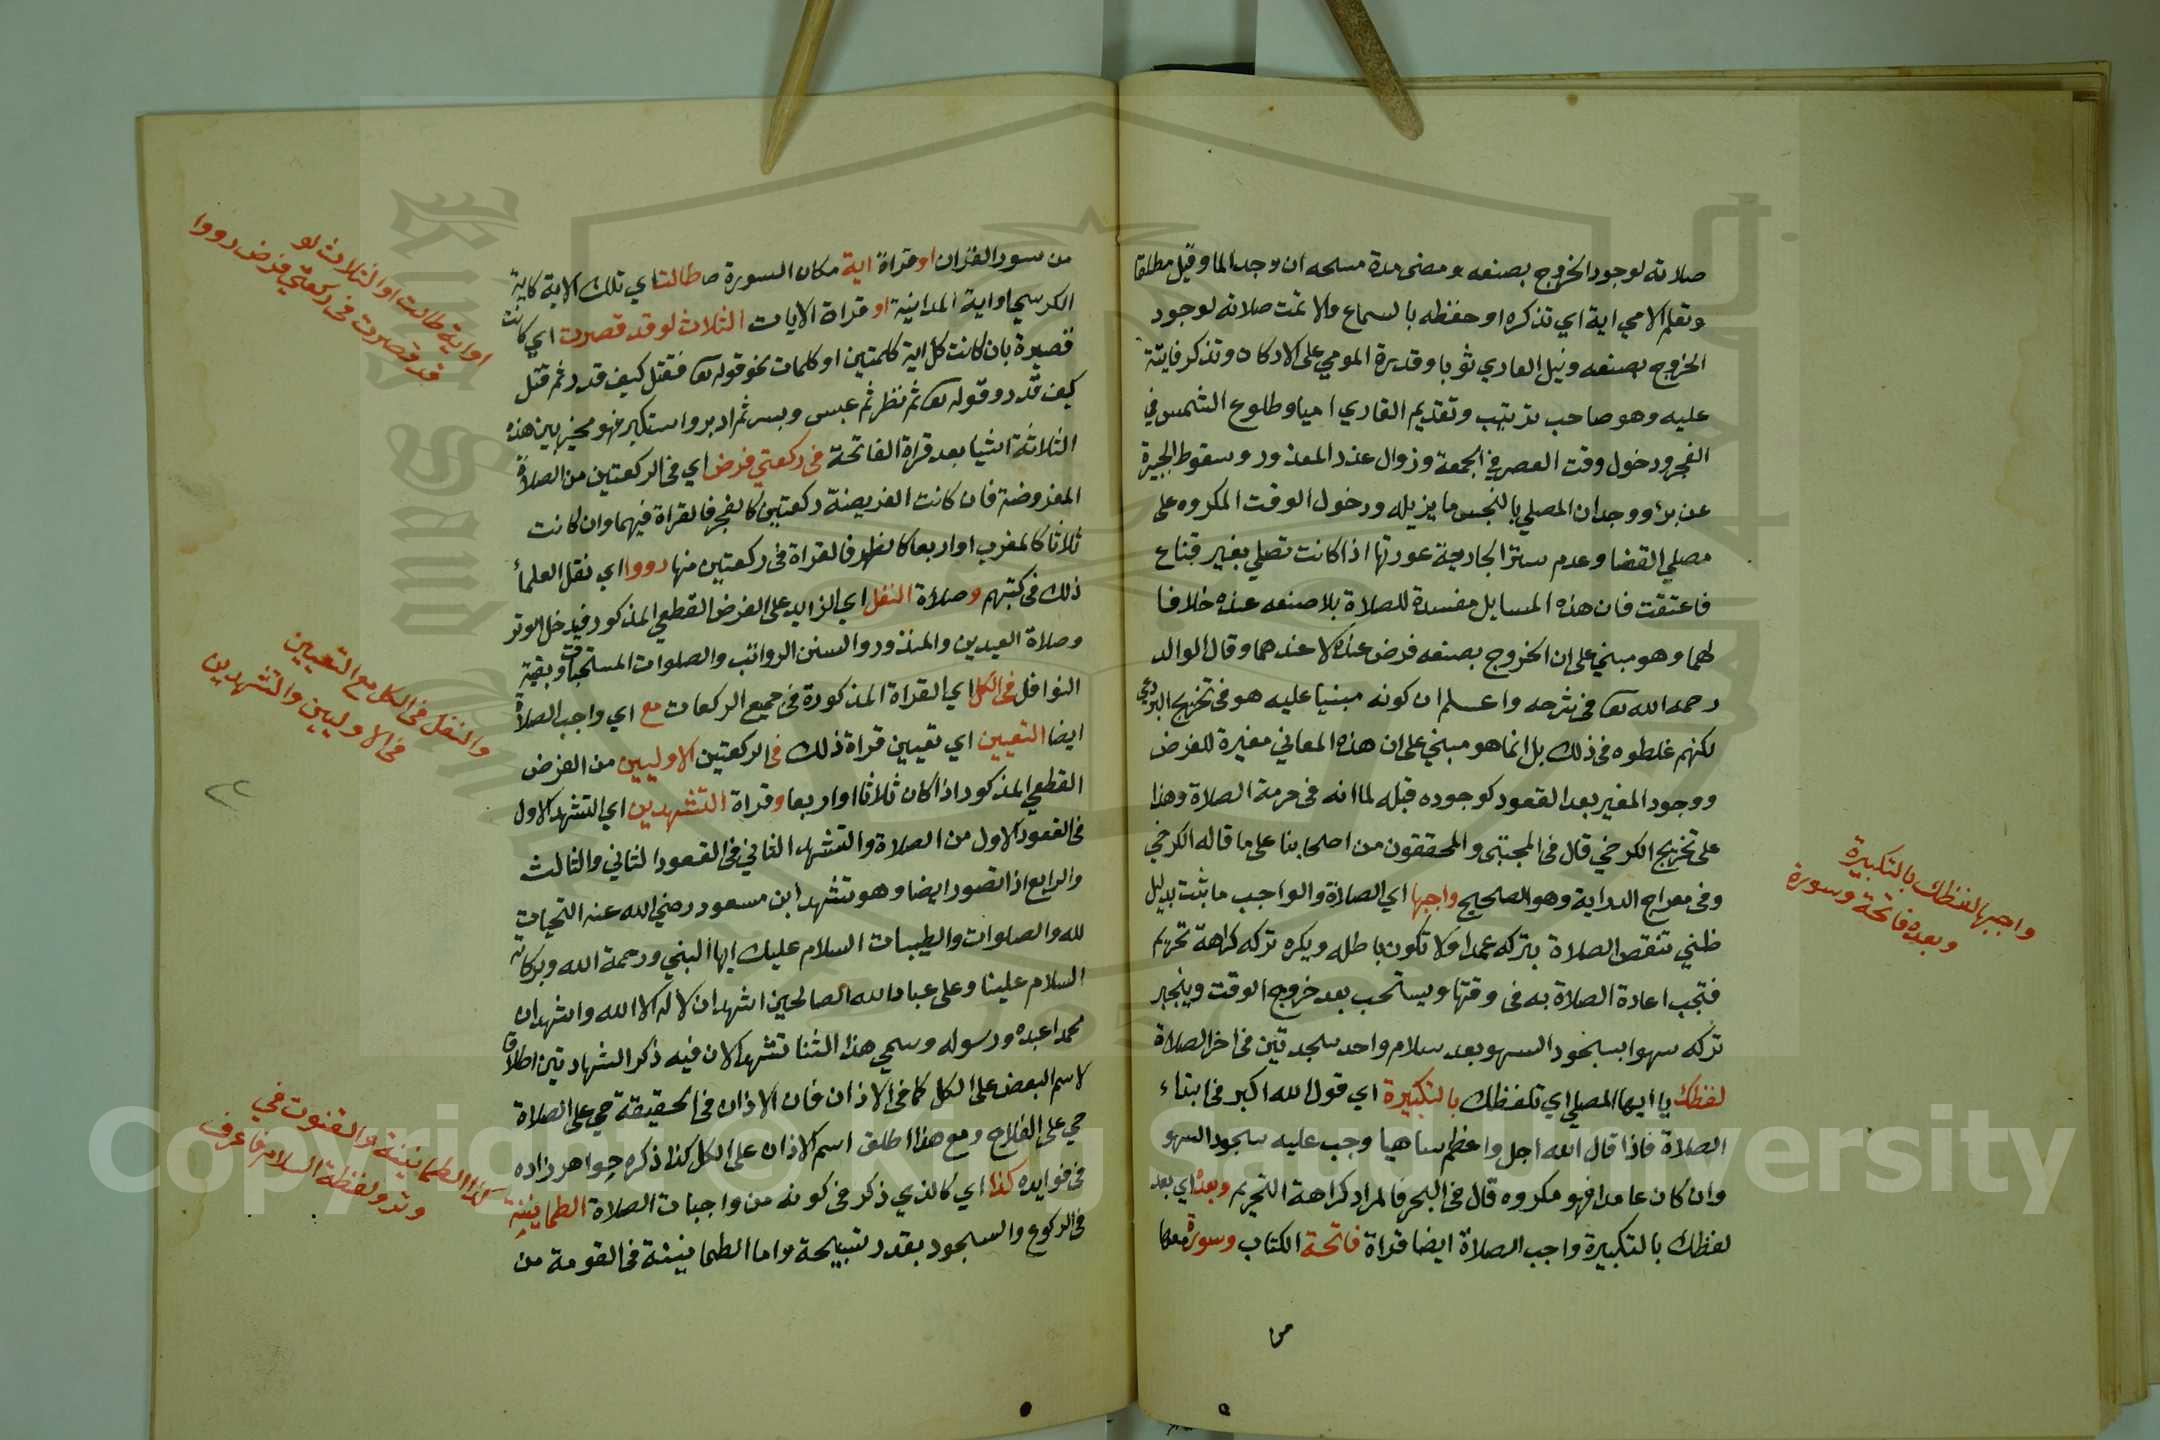 صلاته لوجود الخروج بصنعه ومضى مدة مسحه ان وجد الما وقيل مطلقا
وتعلم الامي اية اي تذكره او حفظه بالسماع والا تمت صلاته لوجود
الخروج بصنعه ونيل العاري ثوبا وقدرة المومي على الاركان وتذكر فايتة
عليه وهو صاحب ترتيب وتقديم القاري اميا وطلوع الشمس في
الفجر ودخول وقت العصر في الجمعة وزوال عذر المعذور وسقوط الجبيرة
عن برؤ ووجدان المصلي بالنجس ما يزيله ودخول الوقت المكروه على
مصلي القضا وعدم ستر الجارية عورتها اذا كانت تصلي بغير قناع
فاعتقت فان هذه المسايل مفسدة للصلاة بلا صنعه عنده خلافا
لهما وهو مبني على ان الخروج بصنعه فرض عنده لا عندهما وقال الوالد
رحمه الله تعا في شرحه واعلم ان كونه مبنيا عليه هو في تخريج البردعي
لكنهم غلطوه في ذلك بل انما هو مبني على ان هذه المعاني مغيرة للفرض
ووجود المغير بعد القعود كوجوده قبله لما انه في حرمة الصلاة وهذا
على تخريج الكرخي قال في المجتبى والمحققون من اصحابنا على ما قاله الكرخي
وفي معراج الدراية وهو الصحيح واجبها اي الصلاة والواجب ما ثبت بدليل
ظني تنقص الصلاة بتركه عمدا ولا تكون باطله ويكره تركه كراهة تحريم
فتجب اعادة الصلاة به في وقتها ويستحب بعد خروج الوقت وينجبر
تركه سهوا بسجود السهو بعد سلام واحد سجدتين في اخر الصلاة
لفظك يا ايها المصلي اي تلفظك بالتكبيرة اي قول الله اكبر في ابتداء
الصلاة فاذا قال الله اجل واعظم ساهيا وجب عليه سجود السهو
وان كان عامدا فهو مكروه قال في البحر فالمراد كراهة التحريم وبعده اي بعد
لفظك بالتكبيرة واجب الصلاة ايضا قراة فاتحة الكتاب وسورة معها
من
واجبها لفظك بالتكبيرة
وبعده فاتحة وسورة
من سور القران او قراة اية مكان السورة طالت اي تلك الاية كاية
الكرسي او اية المداينة او قراة الايات الثلاث لو قد قصرت اي كانت
قصيرة بان كانت كل اية كلمتين او كلمات نحو قوله تعا فقتل كيف قدر ثم قتل
كيف قدر وقوله تعا ثم نظر ثم عبس وبسر ثم ادبر واستكبر فهو مخير بين هذه
الثلاثة اشيا بعد قراة الفاتحة في ركعتي فرض اي في الركعتين من الصلاة
المفروضة فان كانت الفريضة ركعتين كالفجر فالقراة فيهما وان كانت
ثلاثا كالمغرب او اربعا كالظهر فالقراة في ركعتين منها رووا اي نقل العلمأ
ذلك في كتبهم وصلاة النفل اي الزايد على الفرض القطعي المذكور فيدخل الوتر
وصلاة العيدين والمنذور والسنن الرواتب والصلوات المستحبات وبقية
النوافل في الكل اي القراة المذكورة في جميع الركعات مع اي واجب الصلاة
ايضا التعيين اي تعيين قراة ذلك في الركعتين الاوليين من الفرض
القطعي المذكور اذا كان ثلاثا او اربعا وقراة التشهدين اي التشهد الاول
في القعود الاول من الصلاة والتشهد الثاني في القعود الثاني والثالث
والرابع اذا تصور ايضا وهو تشهد ابن مسعود رضي الله عنه التحيات
لله والصلوات والطيبات السلام عليك ايها النبي ورحمة الله وبركاته
السلام علينا وعلى عباد الله الصالحين اشهد ان لا اله الا الله واشهد ان
محمدا عبده ورسوله وسمي هذا الثنا تشهدا لان فيه ذكر الشهادتين اطلاقا
لاسم البعض على الكل كما في الاذان فان الاذان في الحقيقة حي على الصلاة
حي على الفلاح ومع هذا اطلق اسم الاذان على الكل كذا ذكره جواهر زاده
في فوايده كذا اي كالذي ذكر في كونه من واجبات الصلاة الطمانينة
في الركوع والسجود بقدر تسبيحة واما الطمانينة في القومة من
او اية طالت او الثلاث لو
قد قصرت في ركعتي فرض رووا
والنفل في الكل مع التعيين
في الاوليين والتشهدين
كذا الطمانينة والقنوت في
وتر ولفظة السلام فاعرف
Copyright © King Saud University
King Saud University